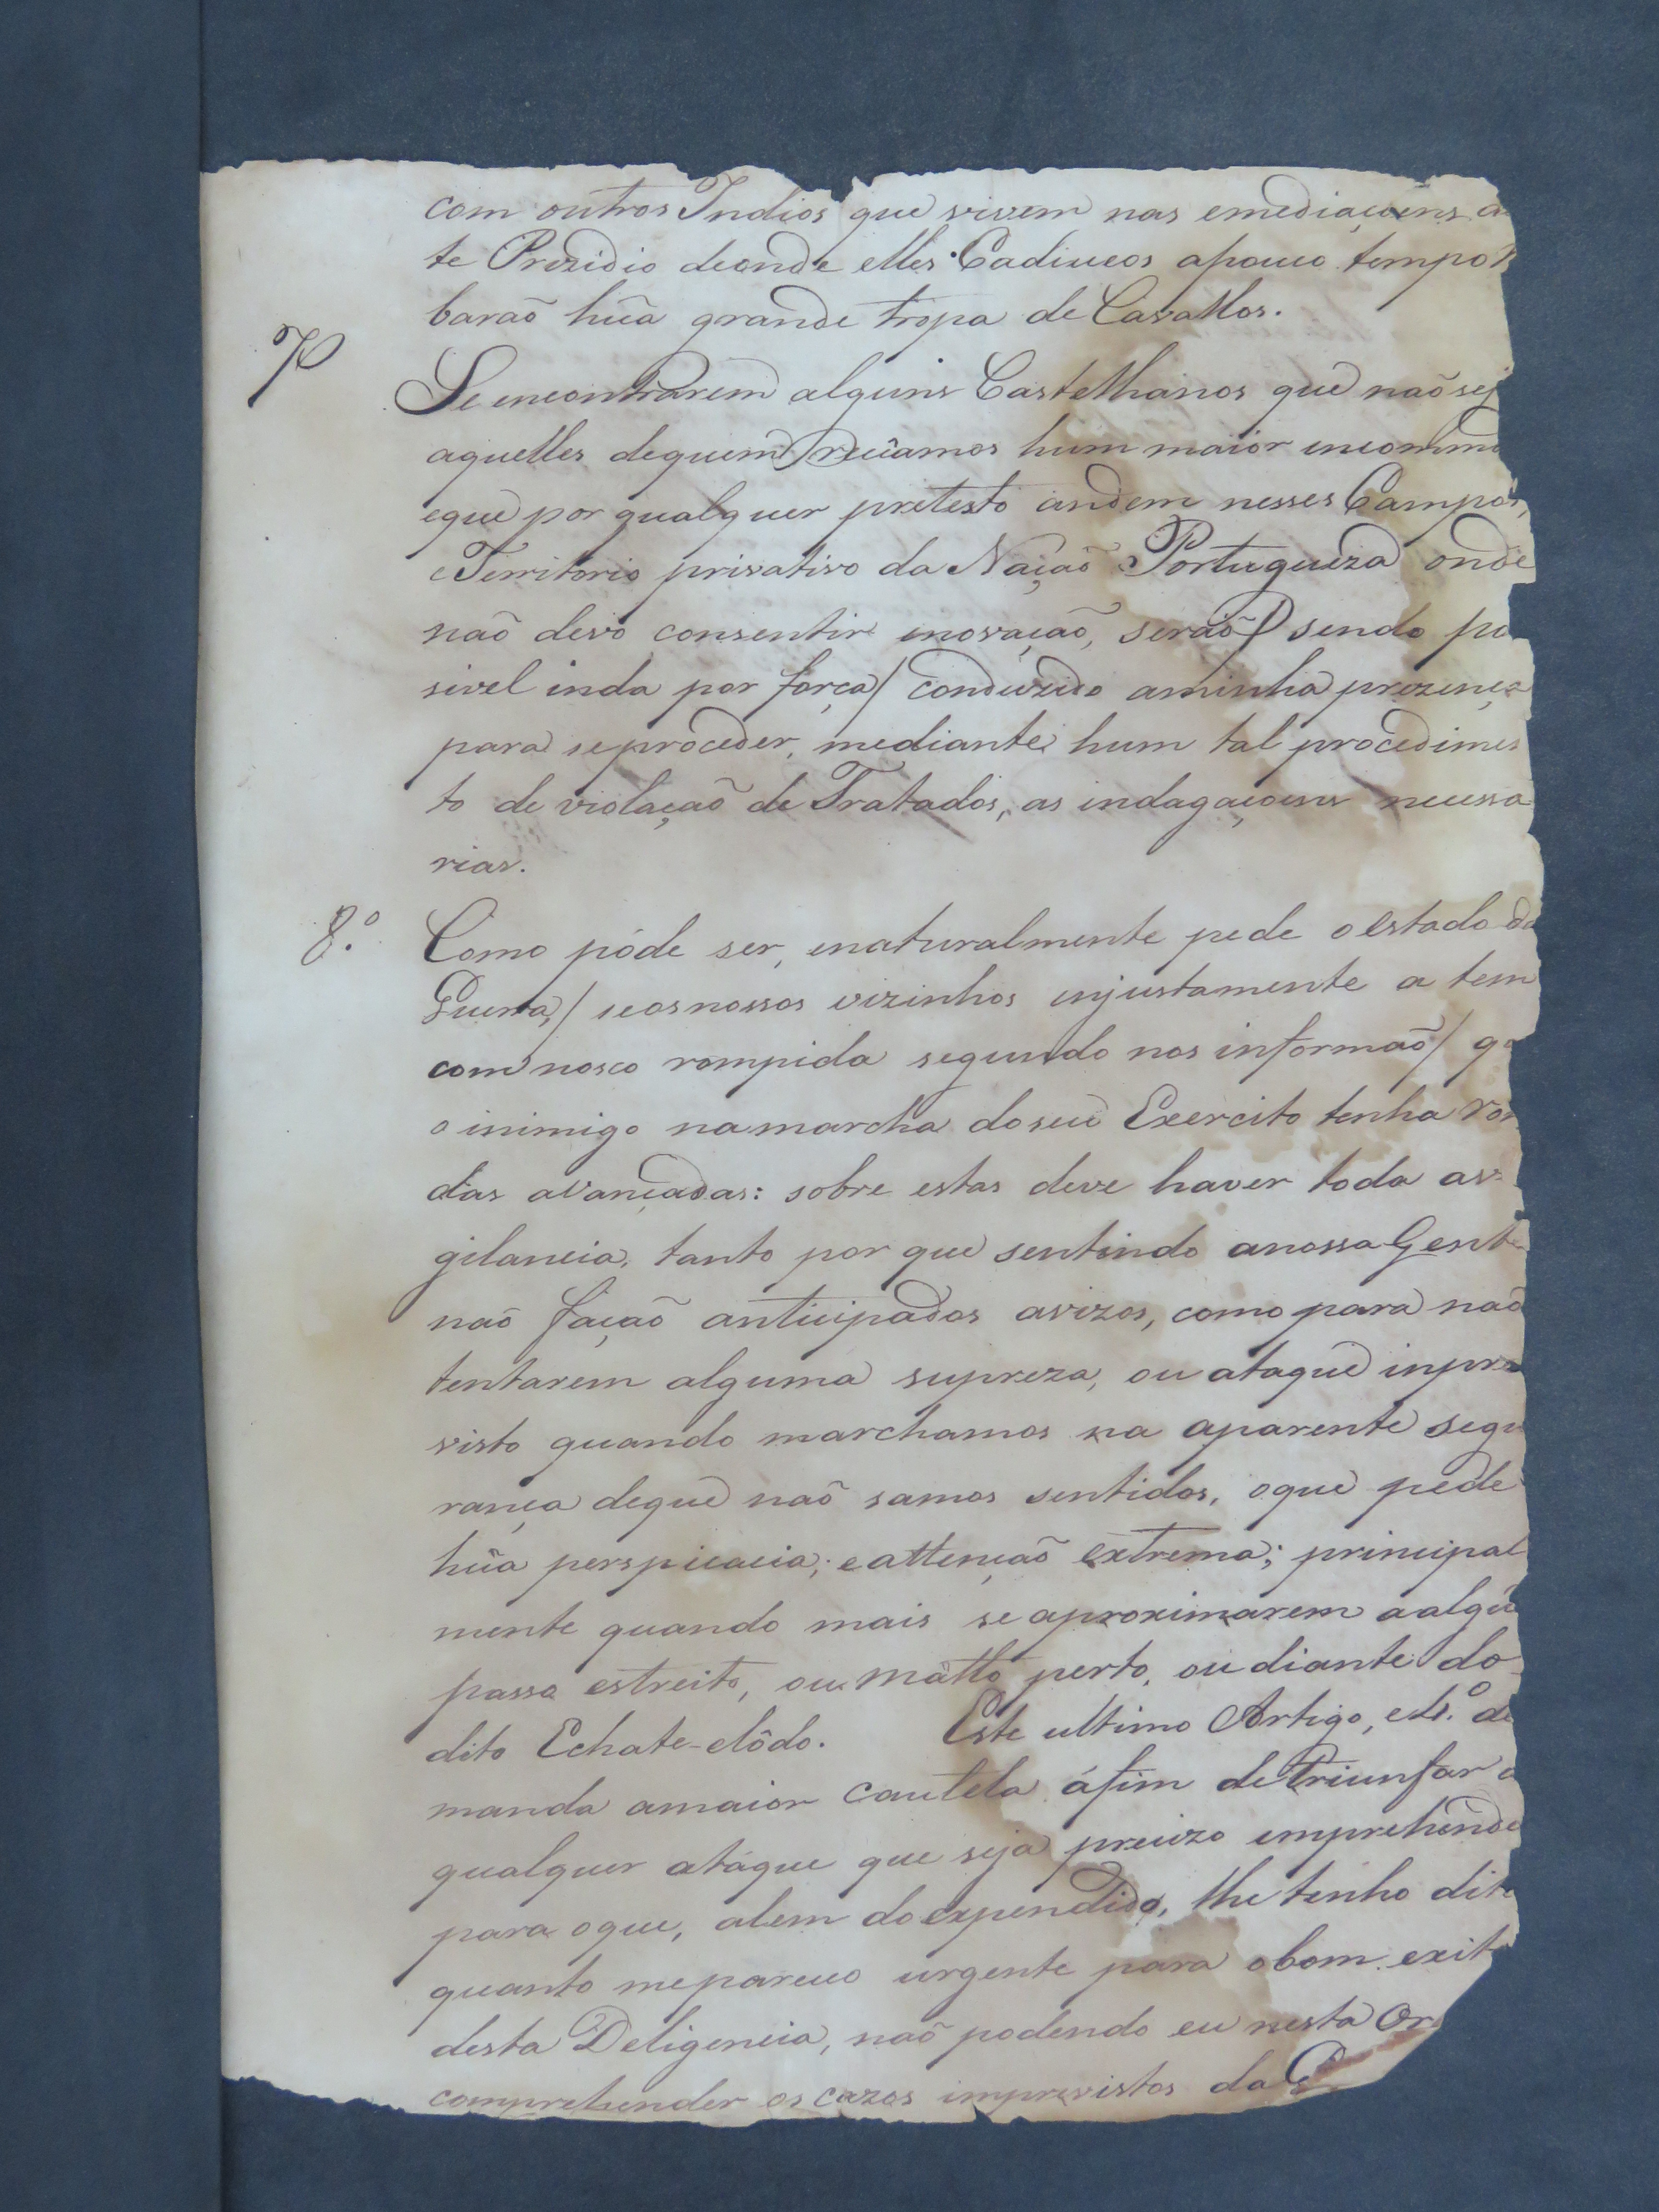 com outros Indios que vivem nas emediaçoens
te Prezidio deonde elles Cadiueos apouco tempo
baraõ hũa grande tropa de Cavallos.
7º
Se encontrarem alguns Castelhanos que naõ sej
aquelles dequem recêamos hum maior incommo
eque por qualquer pretesto andem nesses Campos,
eTerritorio privativo da Naçaõ Portugueza onde
naõ devo consentir inovaçaõ, seraõ/ sendo po
sivel inda por força/ conduzido aminha prezença
para seproceder, mediante hum tal procedimen
to de violaçaõ de Tratados, as indagaçoens necessa
rias.
8.º
Como póde ser, enaturalmente pede oEstado da
Guerra,/ seosnossos vizinhos injustamente a tem
com nosco rompida segundo nos informaõ/ q
o inimigo namarcha doseu Exercito tenha ron
das avançadas: sobre estas deve haver toda avi
gilancia, tanto por que sentindo anossa Gente
naõ façaõ anticipados avizos, como para naõ
tentarem alguma supreza, ou ataque inpre
visto quando marchamos na aparente segu
rança deque naõ samos sentidos, oque pede
hũa perspicacia, eattençaõ extrema; principal
mente quando mais se aproximarem aalgũ
passo estreito, ou matto perto, ou diante do
dito Echate-clôdo. Este ultimo Artigo, e4.º de
manda amaior cautela áfim deTriunfar
qualquer atáque que seja precizo emprehende
para oque, alem doexpendido, lhe tenho dito
quanto mepareceo urgente para obom exito
desta Deligencia, naõ podendo eu nesta Or
comprehender os cazos imprevistos da